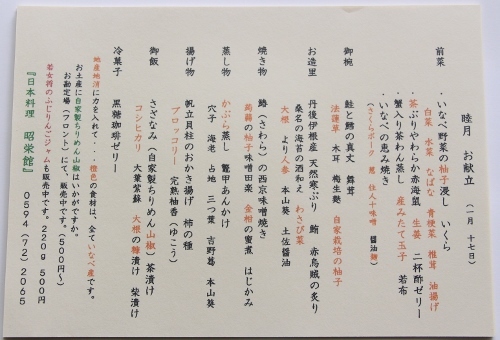 睦月 お献立 (一月 十七日)
前菜 ・いなべ野菜の柚子浸し いくら
白菜 水菜 なばな 青梗菜 椎茸 油揚げ
・茶ぶりやわらか赤海鼠 生姜 二杯酢ゼリー
・蟹入り茶わん蒸し 産みたて玉子 若布
・いなべの恵み焼き
(さくらポーク 葱 仕入十味噌 醤油麹)
御椀 鮭と鱈の真丈 舞茸
法蓮草 木耳 梅生麩 自家栽培の柚子
お造里 丹後伊根産 天然寒ぶり 鮪 赤烏賊の炙り
桑名の海苔の酒和え わさび菜
大根 より人参 本山葵 土佐醤油
焼き物 鰆(さわら)の西京味噌焼き
蒟蒻の柚子味噌田楽 金柑の蜜煮 はじかみ
蒸し物 かぶら蒸し 鼈甲あんかけ
穴子 海老 占地 三つ葉 吉野葛 本山葵
揚げ物 帆立貝柱のおかき揚げ 柿の種
ブロッコリー 完熟柚香(ゆこう)
御飯 さざなみ(自家製ちりめん山椒)茶漬け
コシヒカリ 大葉紫蘇 大根の糠漬け 柴漬け
冷菓子 黒糖珈琲ゼリー
地産地消に力を入れて・・・橙色の食材は、全ていなべ産です。
お土産に自家製ちりめん山椒はいかがですか。
お勘定場(フロント)にて、販売中です。(500円〜)
若女将のふじりんごジャムも販売中です。220g 500円
『日本料理 昭栄館』 0594(72)2065